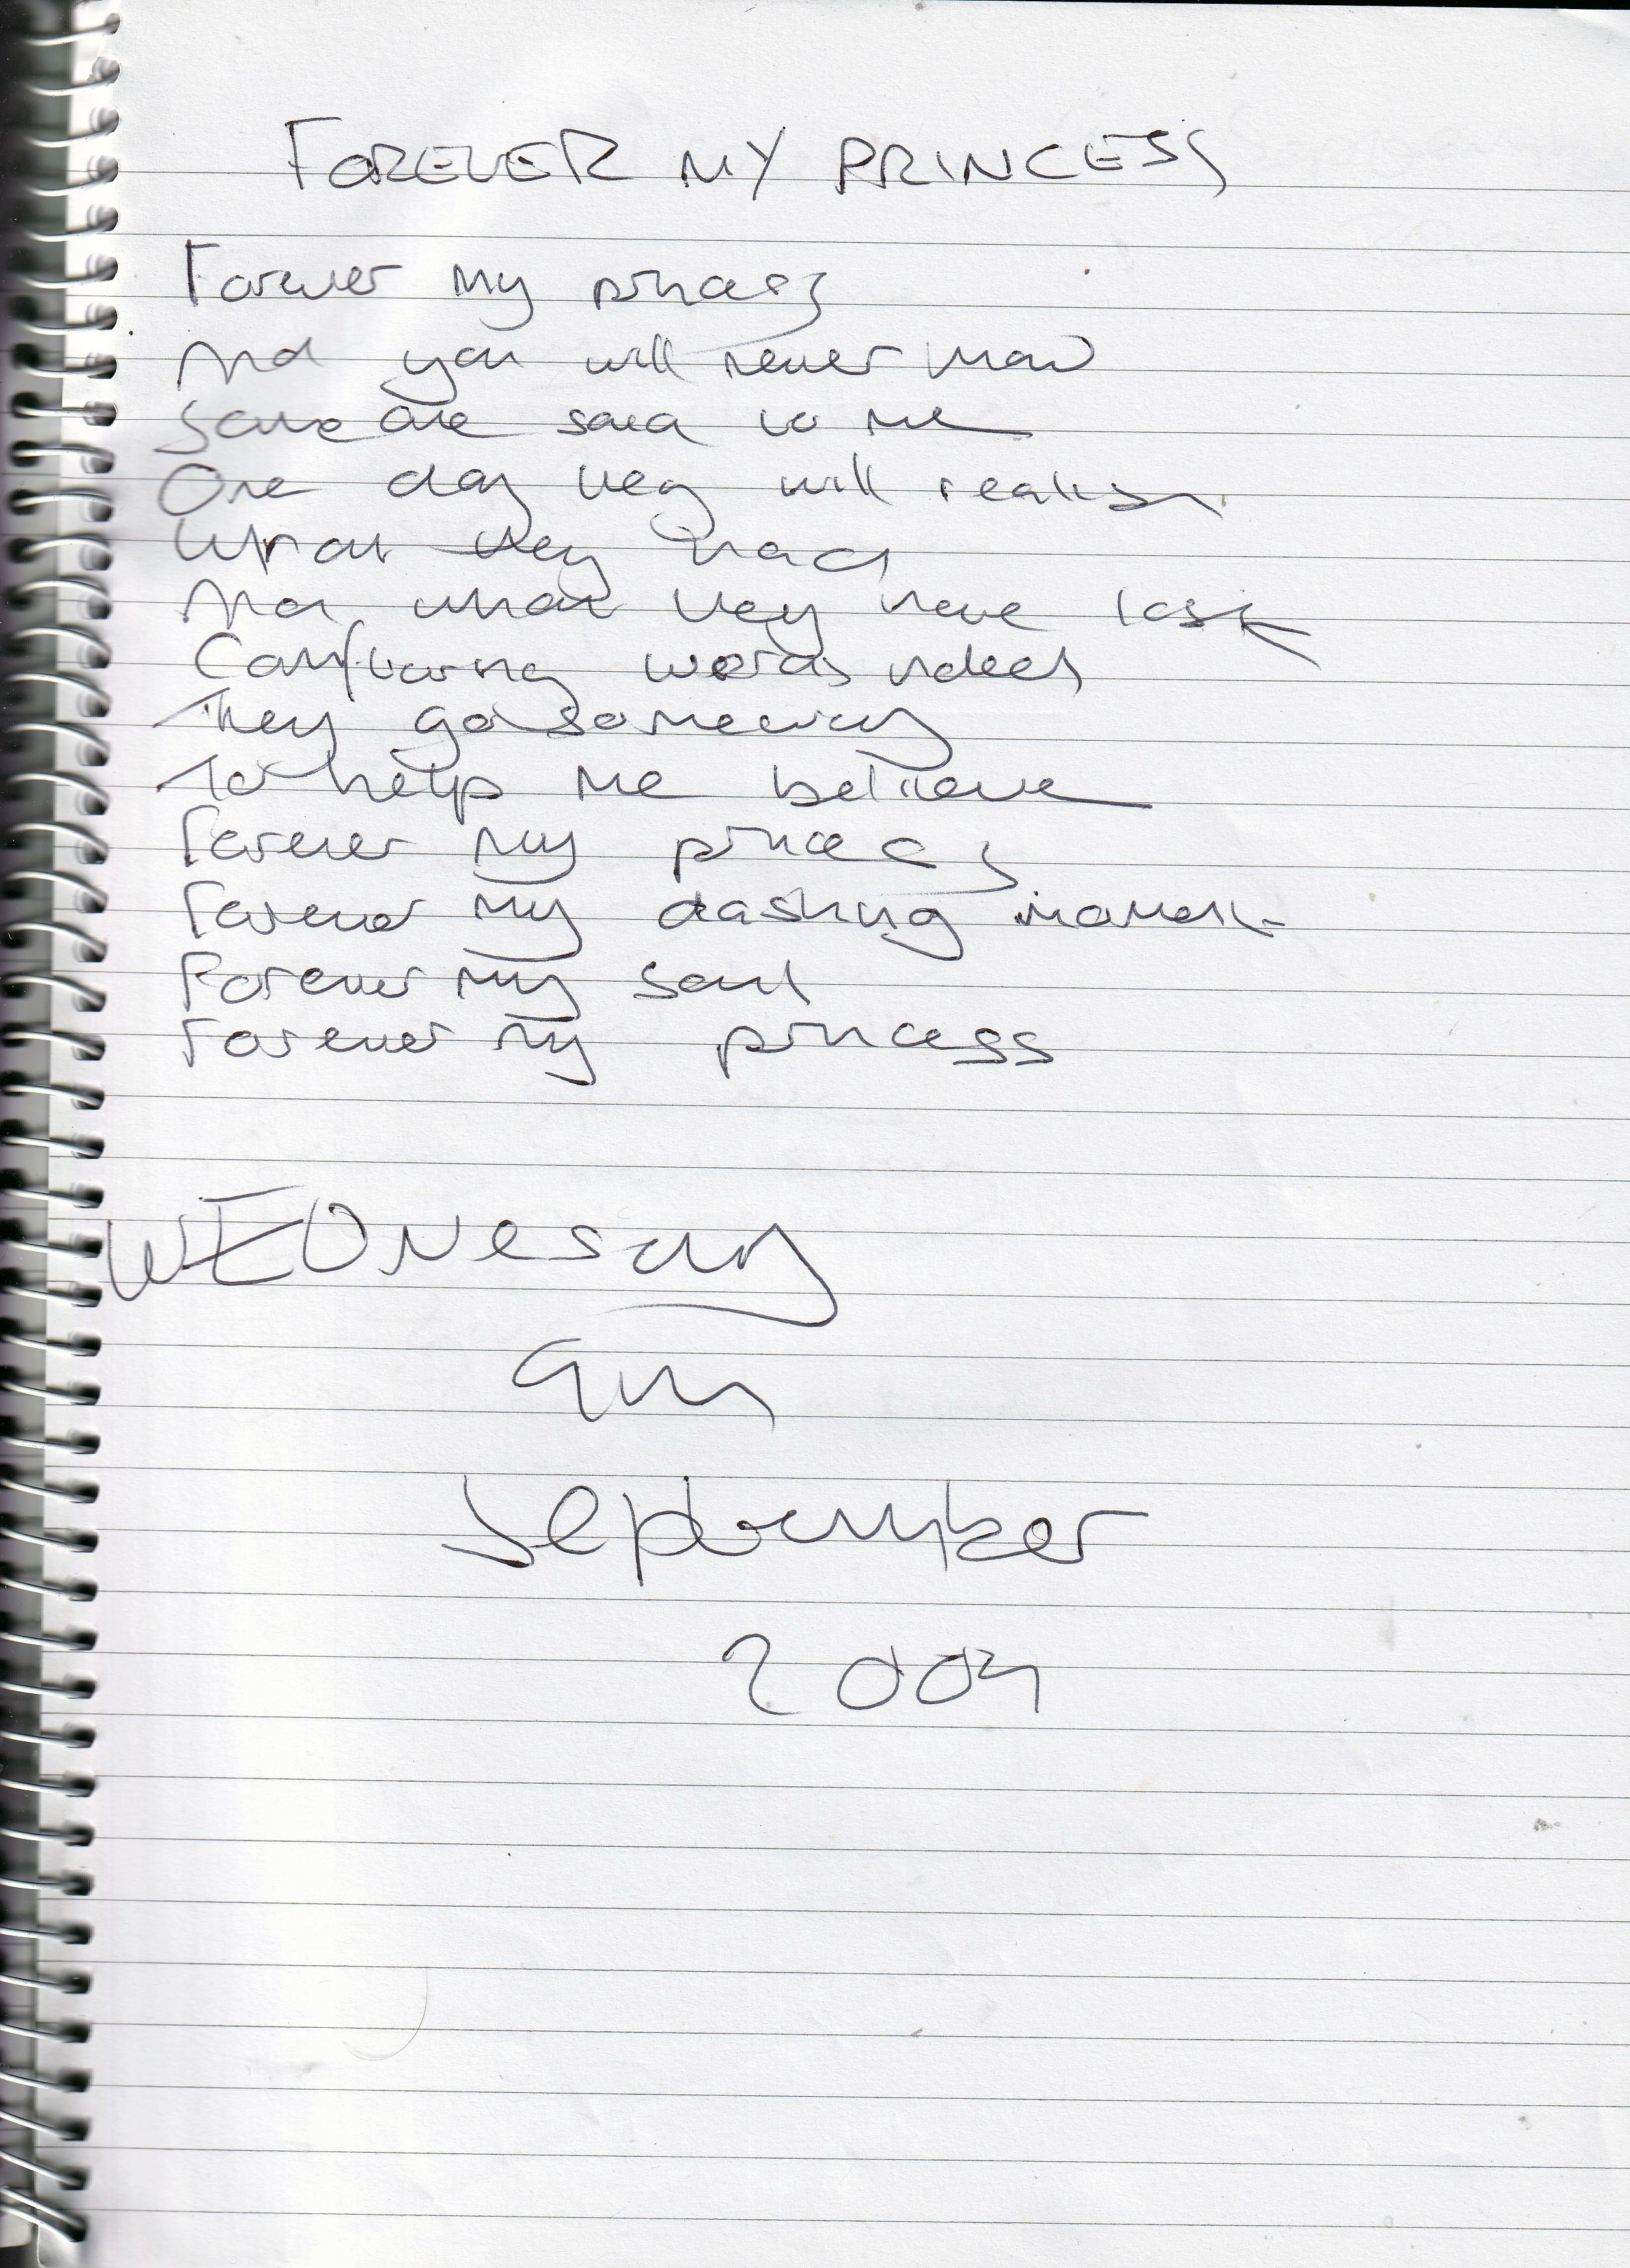 FOREVER MY PRINCESS
Forever my princess
And you will never know
Someone said to me
One day they will realise
What they had
And what they have lost
Comforting words indeed
They go someway
To help me believe
Forever my princess
Forever my dashing
Forever my soul
Forever my princess
WEDNesday
September
2004